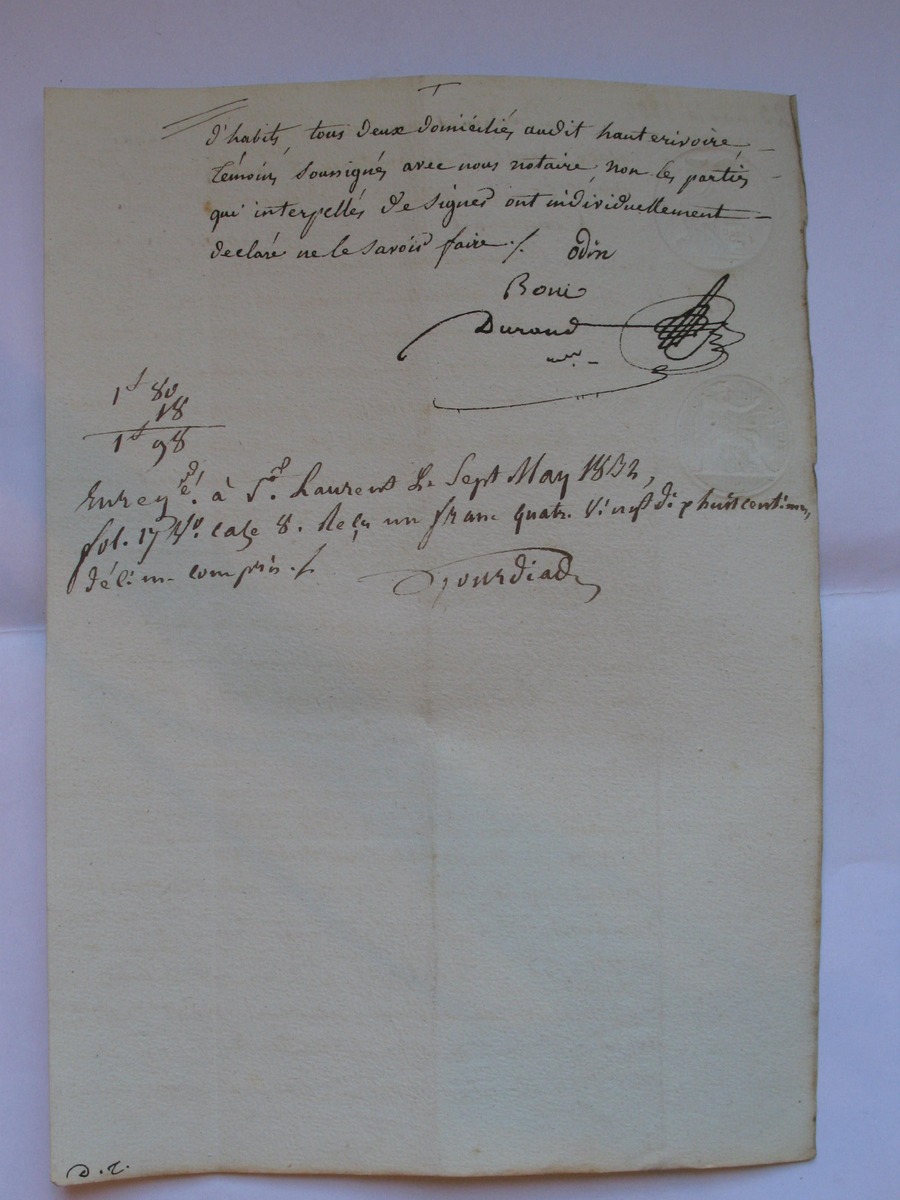 d'habits, tous deux domiciliés audit hauterivoire,
témoins soussignés avec nous notaire, non les parties
qui interpellés de signer ont individuellement
declaré ne le savoir faire ./.
odin
Boni
Durand
1f 80
18
1f 98
Enregé. à St. Laurent Le Sept May 1832,
fol. 17 Vo. case 8. Reçu un franc quatre vingt dix huit centimes,
décime compris ./.
D. T.